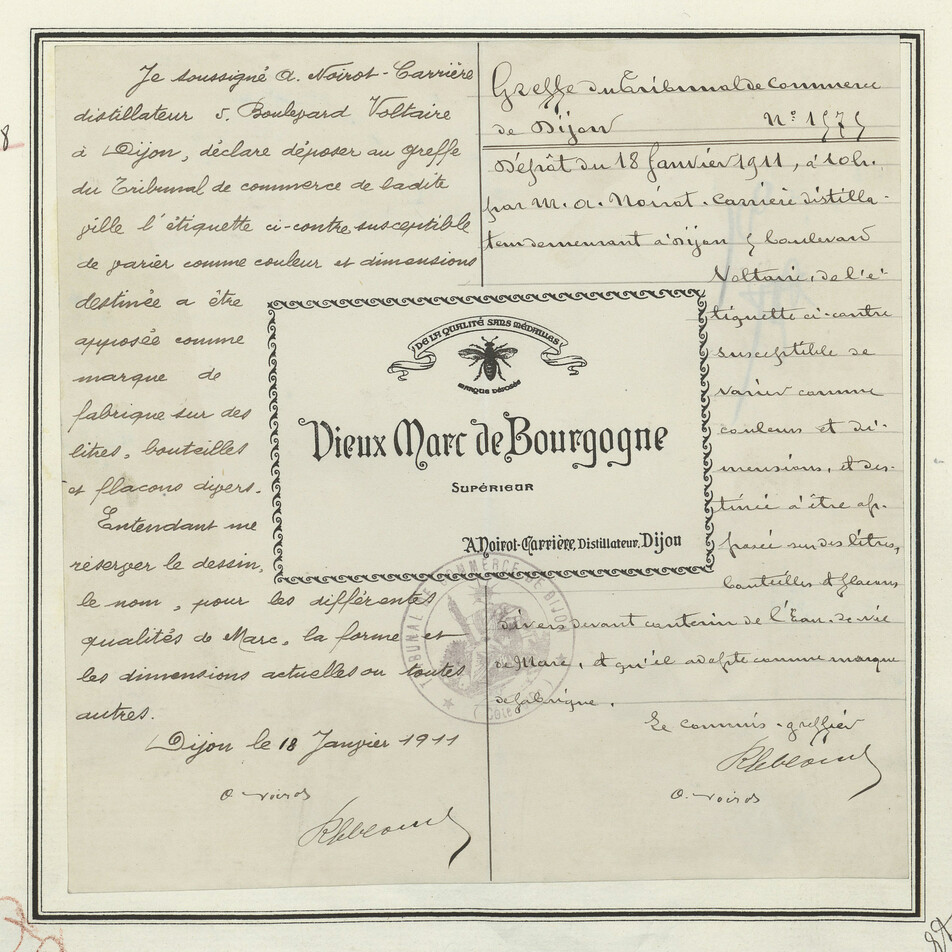 Je soussigné A. Noirot-Carrière
distillateur 5. Boulevard Voltaire
à Dijon, déclare déposer au Greffe
du Tribunal de commerce de ladite
ville l'étiquette ci-contre susceptible
de varier comme couleur et dimensions
destinée a être
apposée comme
marque de
fabrique sur des
litres, bouteilles
et flacons divers.
Entendant me
réserver le dessin,
le nom, pour les différentes
qualités de Marc, la forme et
les dimensions actuelles ou toutes
autres.
Dijon le 18 Janvier 1911
Greffe du Tribunal de Commerce
de Dijon N° 1575
Dépôt du 18 Janvier 1911, à 10h.
par M. A. Noirot-Carrière distilla-
teur demeurant à Dijon 5 boulevard
Voltaire, de l'é-
tiquette ci-contre
susceptible de
varier comme
couleurs et di-
mensions, et des-
tinée à être ap-
posée sur des litres,
bouteilles et flacons
divers devant contenir de l'Eau-de-vie
de Marc, et qu'il adopte comme marque
de fabrique.
Le commis-greffier
DE LA QUALITÉ SANS MÉDAILLES
MARQUE DÉPOSÉE
Vieux Marc de Bourgogne
SUPÉRIEUR
A. Noirot-Carrière, Distillateur, Dijon
TRIBUNAL DE COMMERCE DE DIJON
8